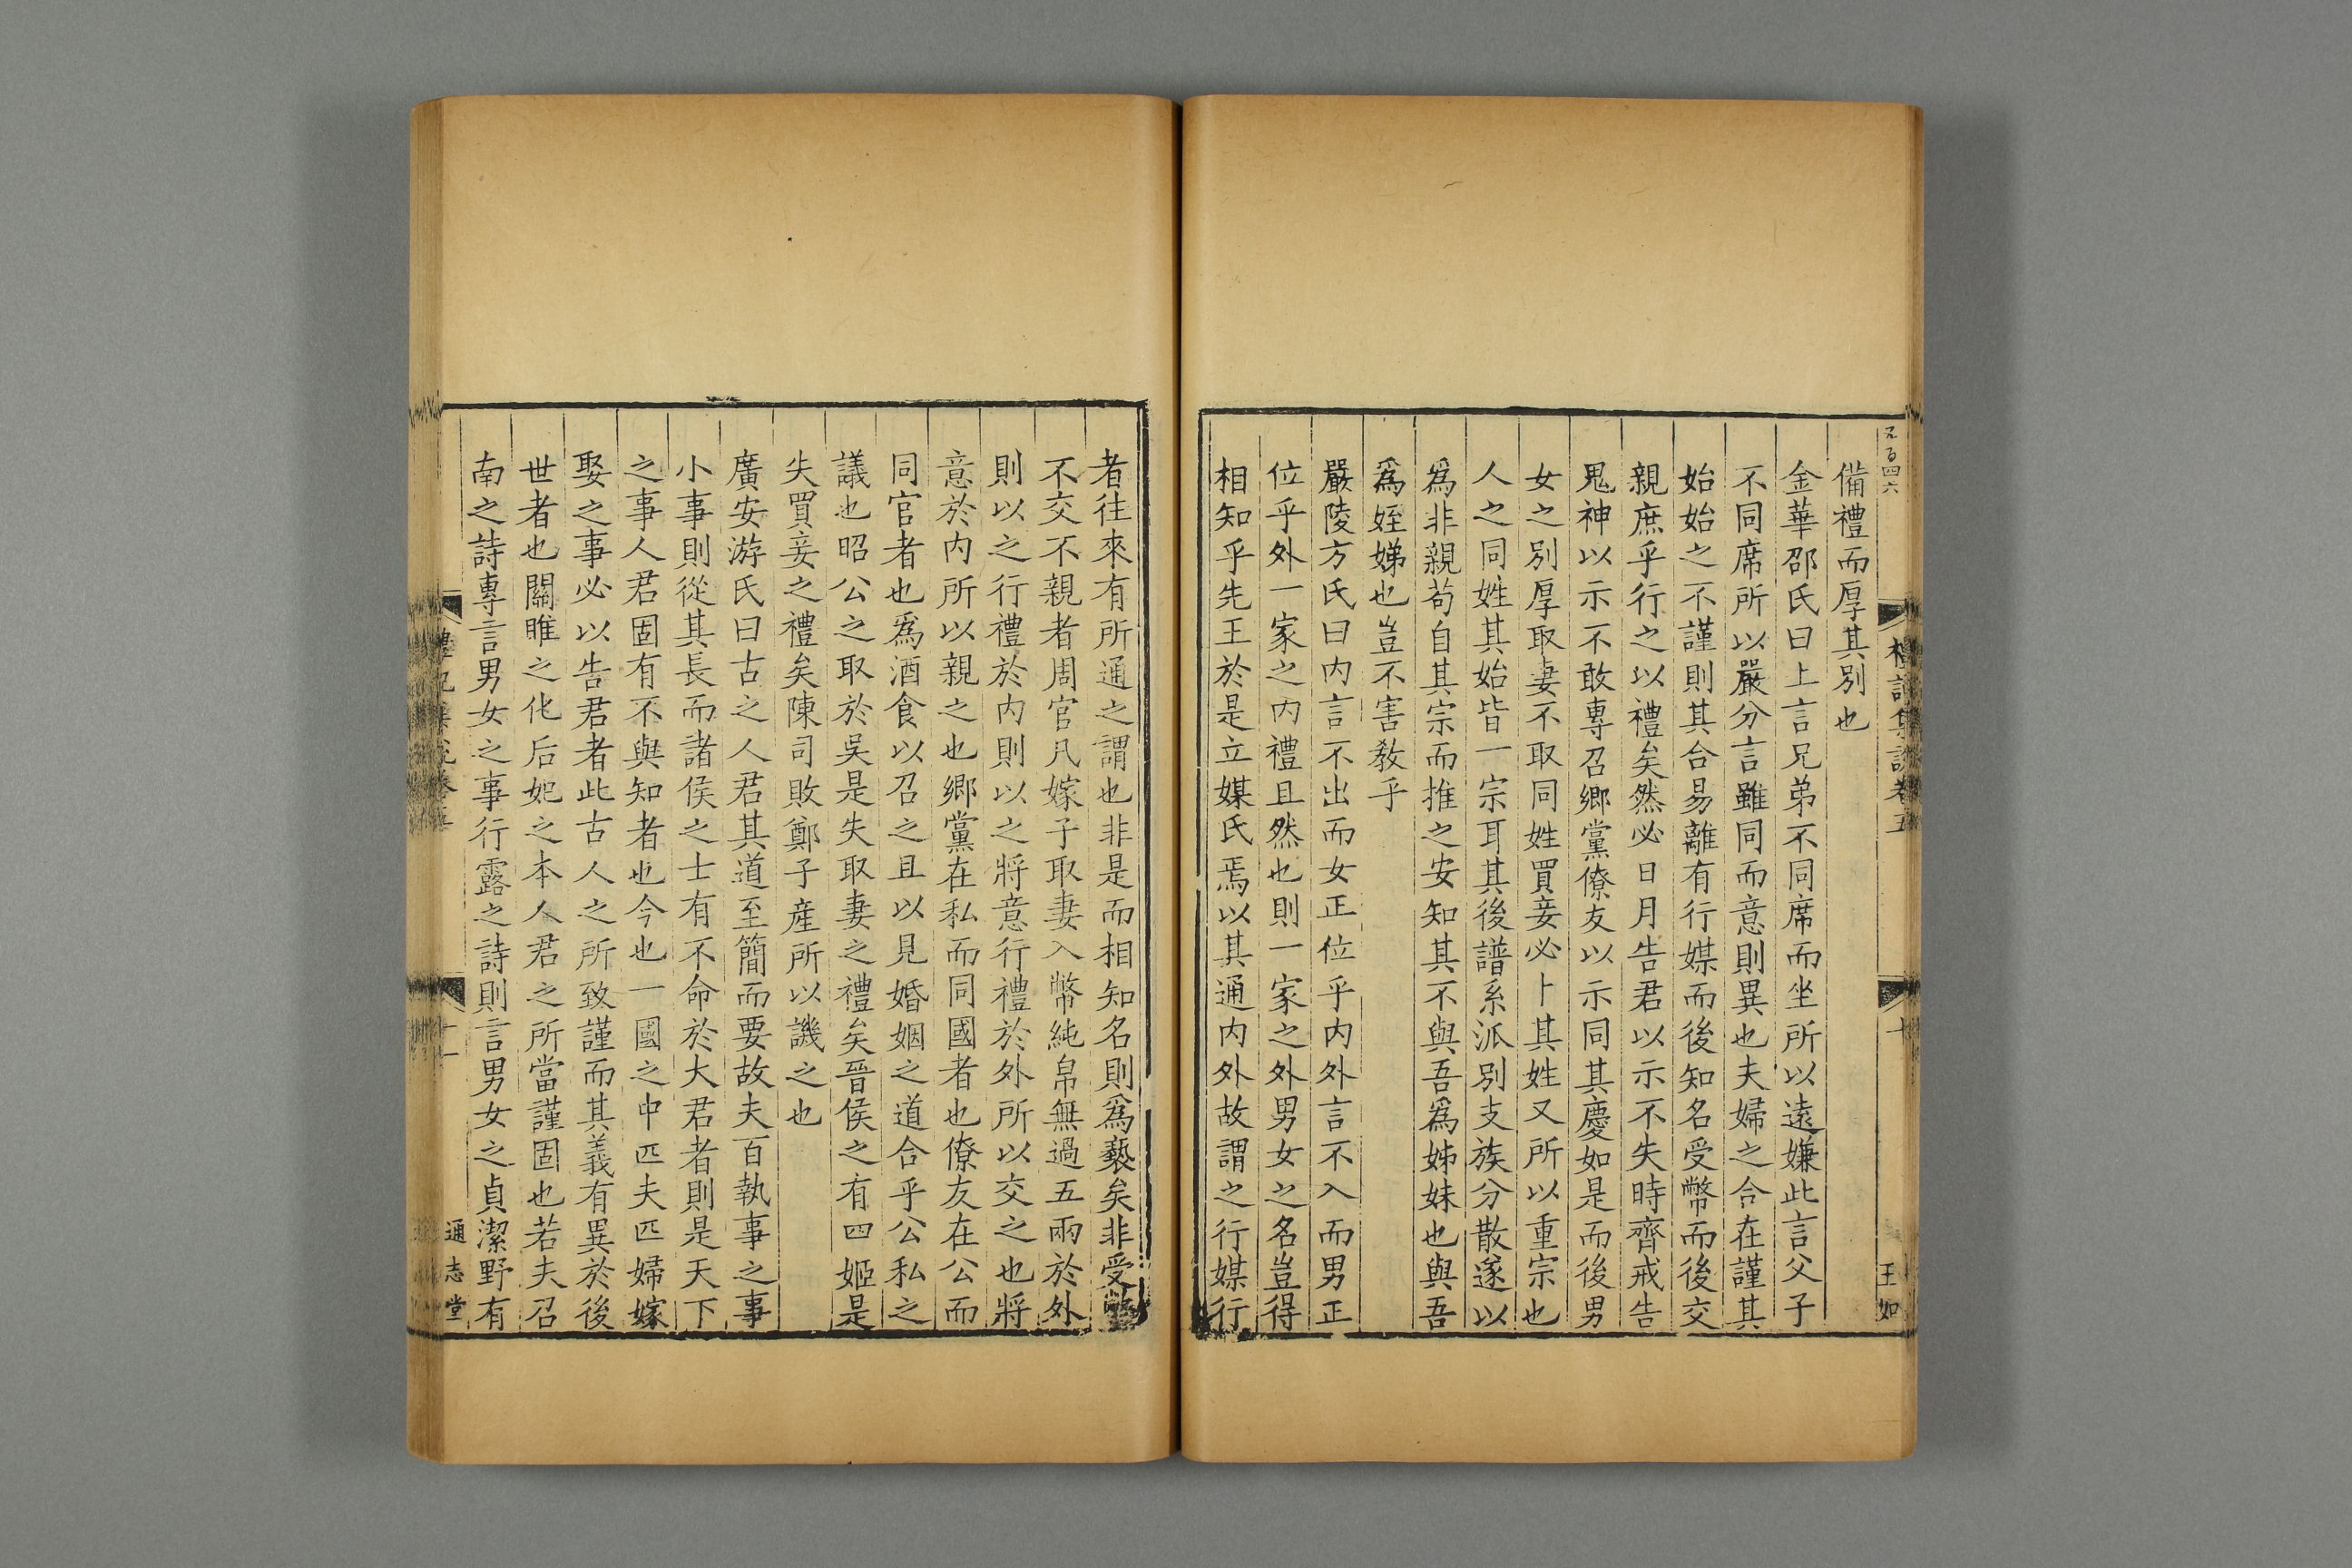 備禮而厚其別也
金華邵氏曰上言兄弟不同席而坐所以遠嫌此言父子
不同席所以嚴分言雖同而意則異也夫婦之合在謹其
始始之不謹則其合易離有行媒而後知名受幣而後交
親庶乎行之以禮矣然必日月告君以示不失時齊戒告
鬼神以示不敢專召鄉黨僚友以示同其慶如是而後男
女之別厚取妻不取同姓買妾必卜其姓又所以重宗也
人之同姓其始皆一宗耳其後譜系派別支族分散遂以
爲非親苟自其宗而推之安知其不與吾爲姊妹也與吾
爲姪娣也豈不害教乎
嚴陵方氏曰内言不出而女正位乎内外言不入而男正
位乎外一家之内禮且然也則一家之外男女之名豈得
相知乎先王於是立媒氏焉以其通内外故謂之行媒行
禮記集說卷五
十
王如
者往來有所通之謂也非是而相知名則爲褻矣非受幣
不交不親者周官凡嫁子取妻入幣純帛無過五兩於外
則以之行禮於内則以之將意行禮於外所以交之也將
意於内所以親之也鄉黨在私而同國者也僚友在公而
同官者也爲酒食以召之且以見婚姻之道合乎公私之
議也昭公之取於吳是失取妻之禮矣晉侯之有四姬是
失買妾之禮矣陳司敗鄭子産所以譏之也
廣安游氏曰古之人君其道至簡而要故夫百執事之事
小事則從其長而諸侯之士有不命於大君者則是天下
之事人君固有不與知者也今也一國之中匹夫匹婦嫁
娶之事必以告君者此古人之所致謹而其義有異於後
世者也關雎之化后妃之本人君之所當謹固也若夫召
南之詩專言男女之事行露之詩則言男女之貞潔野有
十一
通志堂